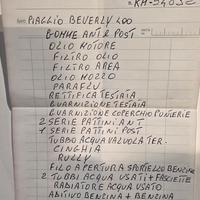 PIAGGIO BEVERLY 400
GOMME ANT & POST
OLIO MOTORE
FILTRO OLIO
FILTRO AREA
OLIO MOZZO
PARAFLU
RETTIFICA TESTATA
GUARNIZIONE TESTATA
GUARNIZIONE COPERCHIO PUNTERIE
2 SERIE PATTINI ANT
1 SERIE PATTINI POST
TUBBO ACQUA VALVOLA TER.
CINGHIA
RULLY
FILO APERTURA SPORTELLO BENZINA
2 TUBBI ACQUA USATI + FASCIETTE
RADIATORE ACQUA USATO
ADITIVO BENZINA + BENZINA